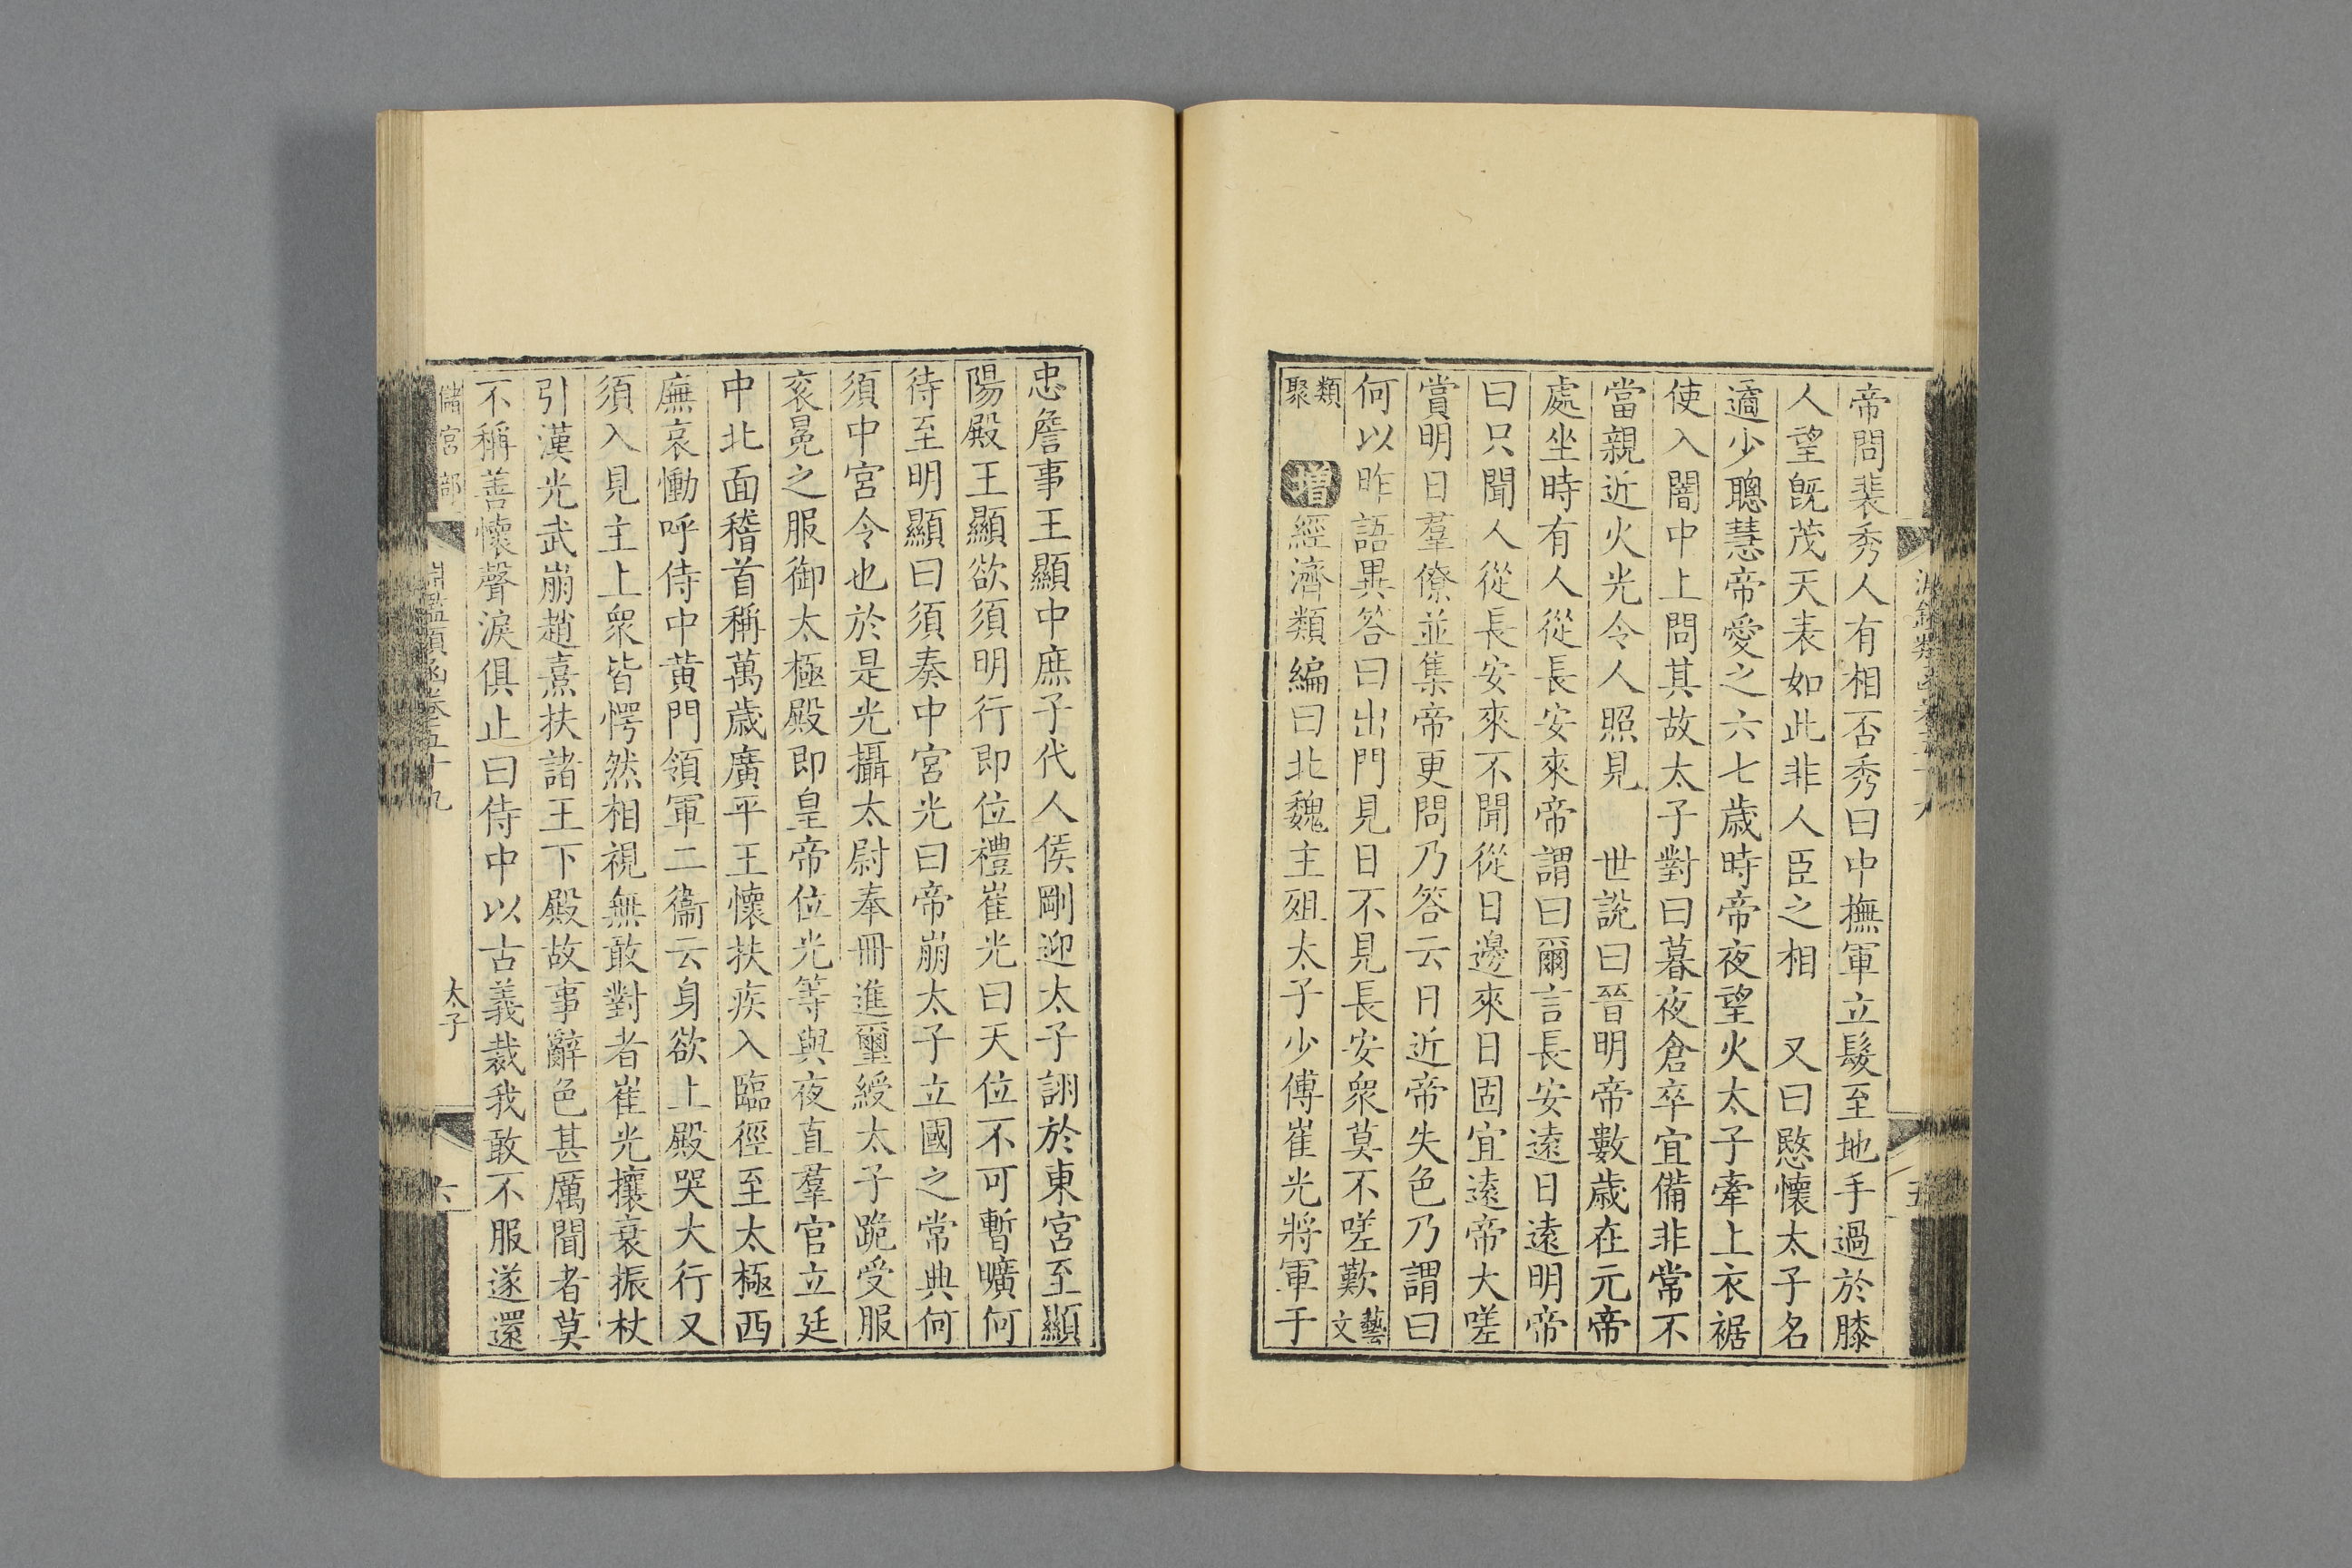 帝問裴秀人有相否秀曰中撫軍立髮至地手過於膝
人望旣茂天表如此非人臣之相　又曰愍懷太子名
遹少聰慧帝愛之六七歲時帝夜望火太子牽上衣裾
使入闇中上問其故太子對曰暮夜倉卒宜備非常不
當親近火光令人照見　世說曰晉明帝數歲在元帝
處坐時有人從長安來帝謂曰爾言長安遠日遠明帝
曰只聞人從長安來不聞從日邊來日固宜遠帝大嗟
賞明日羣僚並集帝更問乃答云日近帝失色乃謂曰
何以昨語異答曰出門見日不見長安衆莫不嗟歎藝文
類聚　增經濟類編曰北魏主殂太子少傅崔光將軍于
忠詹事王顯中庶子代人侯剛迎太子詡於東宮至顯
陽殿王顯欲須明行即位禮崔光曰天位不可暫曠何
待至明顯曰須奏中宮光曰帝崩太子立國之常典何
須中宮令也於是光攝太尉奉冊進璽綬太子跪受服
袞冕之服御太極殿即皇帝位光等與夜直羣官立廷
中北面稽首稱萬歲廣平王懷扶疾入臨徑至太極西
廡哀慟呼侍中黃門領軍二衞云身欲上殿哭大行又
須入見主上衆皆愕然相視無敢對者崔光攘衰振杖
引漢光武崩趙熹扶諸王下殿故事辭色甚厲聞者莫
不稱善懷聲淚俱止曰侍中以古義裁我敢不服遂還
儲宮部　淵鑑類函卷五十九　太子　六